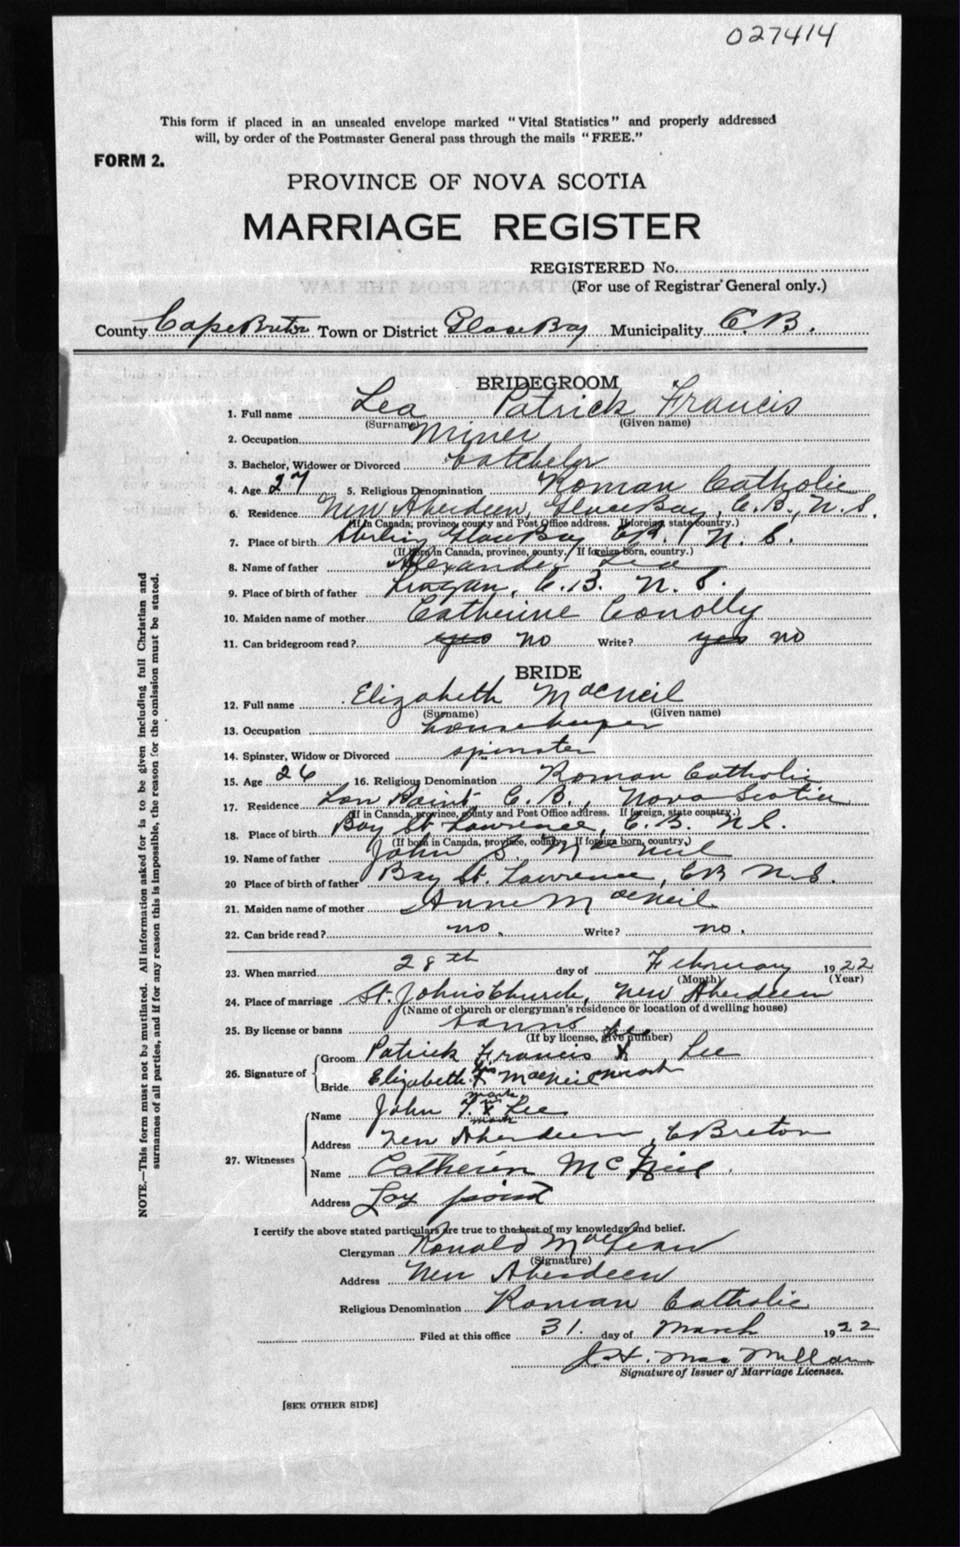 027414
This form if placed in an unsealed envelope marked "Vital Statistics" and properly addressed
will, by order of the Postmaster General pass through the mails "FREE."
FORM 2.
PROVINCE OF NOVA SCOTIA
MARRIAGE REGISTER
REGISTERED No.
(For use of Registrar General only.)
County Cape Breton Town or District Glace Bay Municipality C.B.
BRIDEGROOM
1. Full name Lea Patrick Francis
(Surname) (Given name)
2. Occupation Miner
3. Bachelor, Widower or Divorced batchelor
4. Age 27 5. Religious Denomination Roman Catholic
6. Residence New Aberdeen, Glace Bay, C.B., N.S.
(If in Canada, province, county and Post Office address. If foreign, state country.)
7. Place of birth Sterling Glace Bay C.B. N.S.
(If born in Canada, province, county. If foreign born, country.)
8. Name of father Alexander Lea
9. Place of birth of father C.B. N.S.
10. Maiden name of mother Catherine Conolly
11. Can bridegroom read? yes no Write? yes no
BRIDE
12. Full name Elizabeth MacNeil
(Surname) (Given name)
13. Occupation housekeeper
14. Spinster, Widow or Divorced spinster
15. Age 26 16. Religious Denomination Roman Catholic
17. Residence Low Point C.B., Nova Scotia
(If in Canada, province, county and Post Office address. If foreign, state country.)
18. Place of birth Bay St. Lawrence, C.B. N.S.
(If born in Canada, province, county. If foreign born, country.)
19. Name of father John S. MacNeil
20 Place of birth of father Bay St. Lawrence, CB N.S.
21. Maiden name of mother Anne MacNeil
22. Can bride read? no. Write? no.
23. When married 28th day of February 1922
(Month) (Year)
24. Place of marriage St. John's Church, New Aberdeen
(Name of church or clergyman's residence or location of dwelling house)
25. By license or banns banns
(If by license, give number)
26. Signature of Groom Patrick Francis X Lee
Bride Elizabeth X MacNeil mark
27. Witnesses Name John F. X Lee
mark
Address New Aberdeen, C Breton
Name Catherin McNeil
Address Loy point
I certify the above stated particulars are true to the best of my knowledge and belief.
Clergyman Ronald MacLean
(Signature)
Address New Aberdeen
Religious Denomination Roman Catholic
Filed at this office 31. day of March 1922
J. H. MacMillan
Signature of Issuer of Marriage Licenses.
[SEE OTHER SIDE]
NOTE.—This form must not be mutilated. All information asked for is to be given including full Christian and
surnames of all parties, and if for any reason this is impossible, the reason for the omission must be stated.